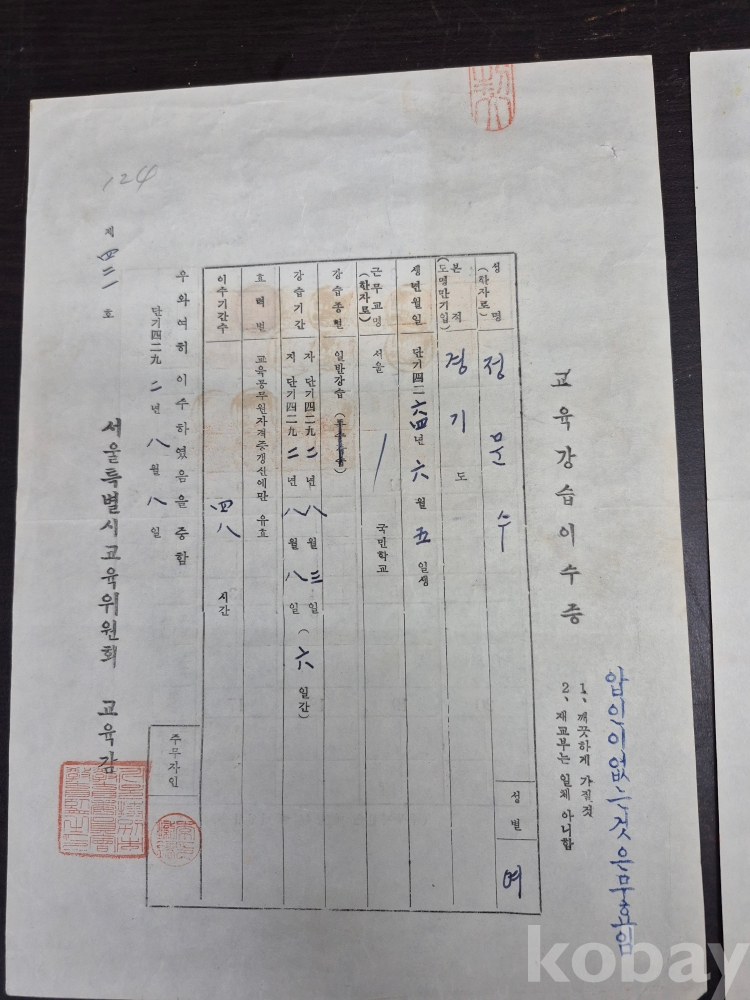 교육강습이수증
1、깨끗하게 가질것
2、재교부는 일체 아니함
압인이 없는것은 무효임
성명 (한자로) 정문수 성별 여
본적 (도명만기입) 경기도
생년월일 단기四二六四年 六월 五일생
근무교명 (한자로) 서울 국민학교
강습종별 일반강습
강습기간 자 단기四二九二년 八월 三일
지 단기四二九二년 八월 八일 (六일간)
효력별 교육공무원자격증갱신에만 유효
이수기간수 四八 시간
우와여히 이수하였음을 증함
단기四二九二년 八월 八일
제 四二一 호
서울특별시교육위원회 교육감
주무자인
124
kobay